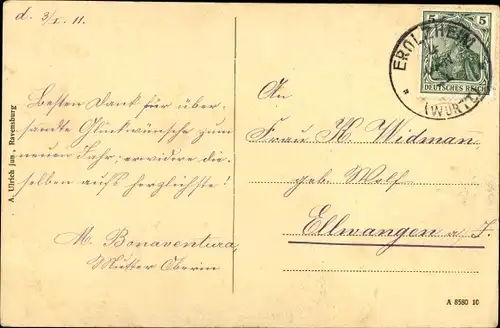 d. 3/I. 11.
Besten Dank für über-
sandte Glückwünsche zum
neuen Jahr; erwidere die-
selben aufs herzlichste!
M. Bonaventura,
Mutter Oberin
A. Ulrich jun., Ravensburg
5 5
DEUTSCHES REICH
EROLZHEIM
(WÜRTT
An
Frau K. Widman
geb. Wolf
Ellwangen a/J.
A 8580 10